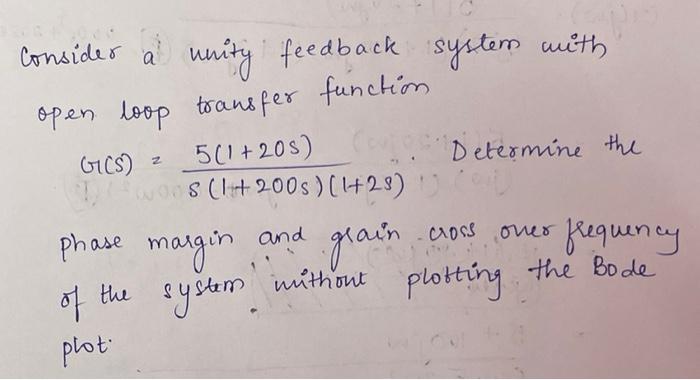 Consider a unity feedback system with
open loop transfer function
G(S) = 5(1+20S) / S(1+200S)(1+2S) . Determine the
phase margin and gain cross over frequency
of the system without plotting the Bode
plot.